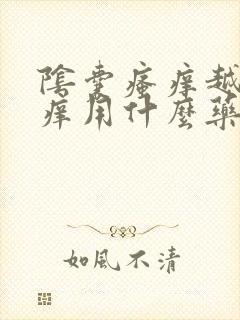 陰囊瘙痒越
痒用什麼藥
如風不清